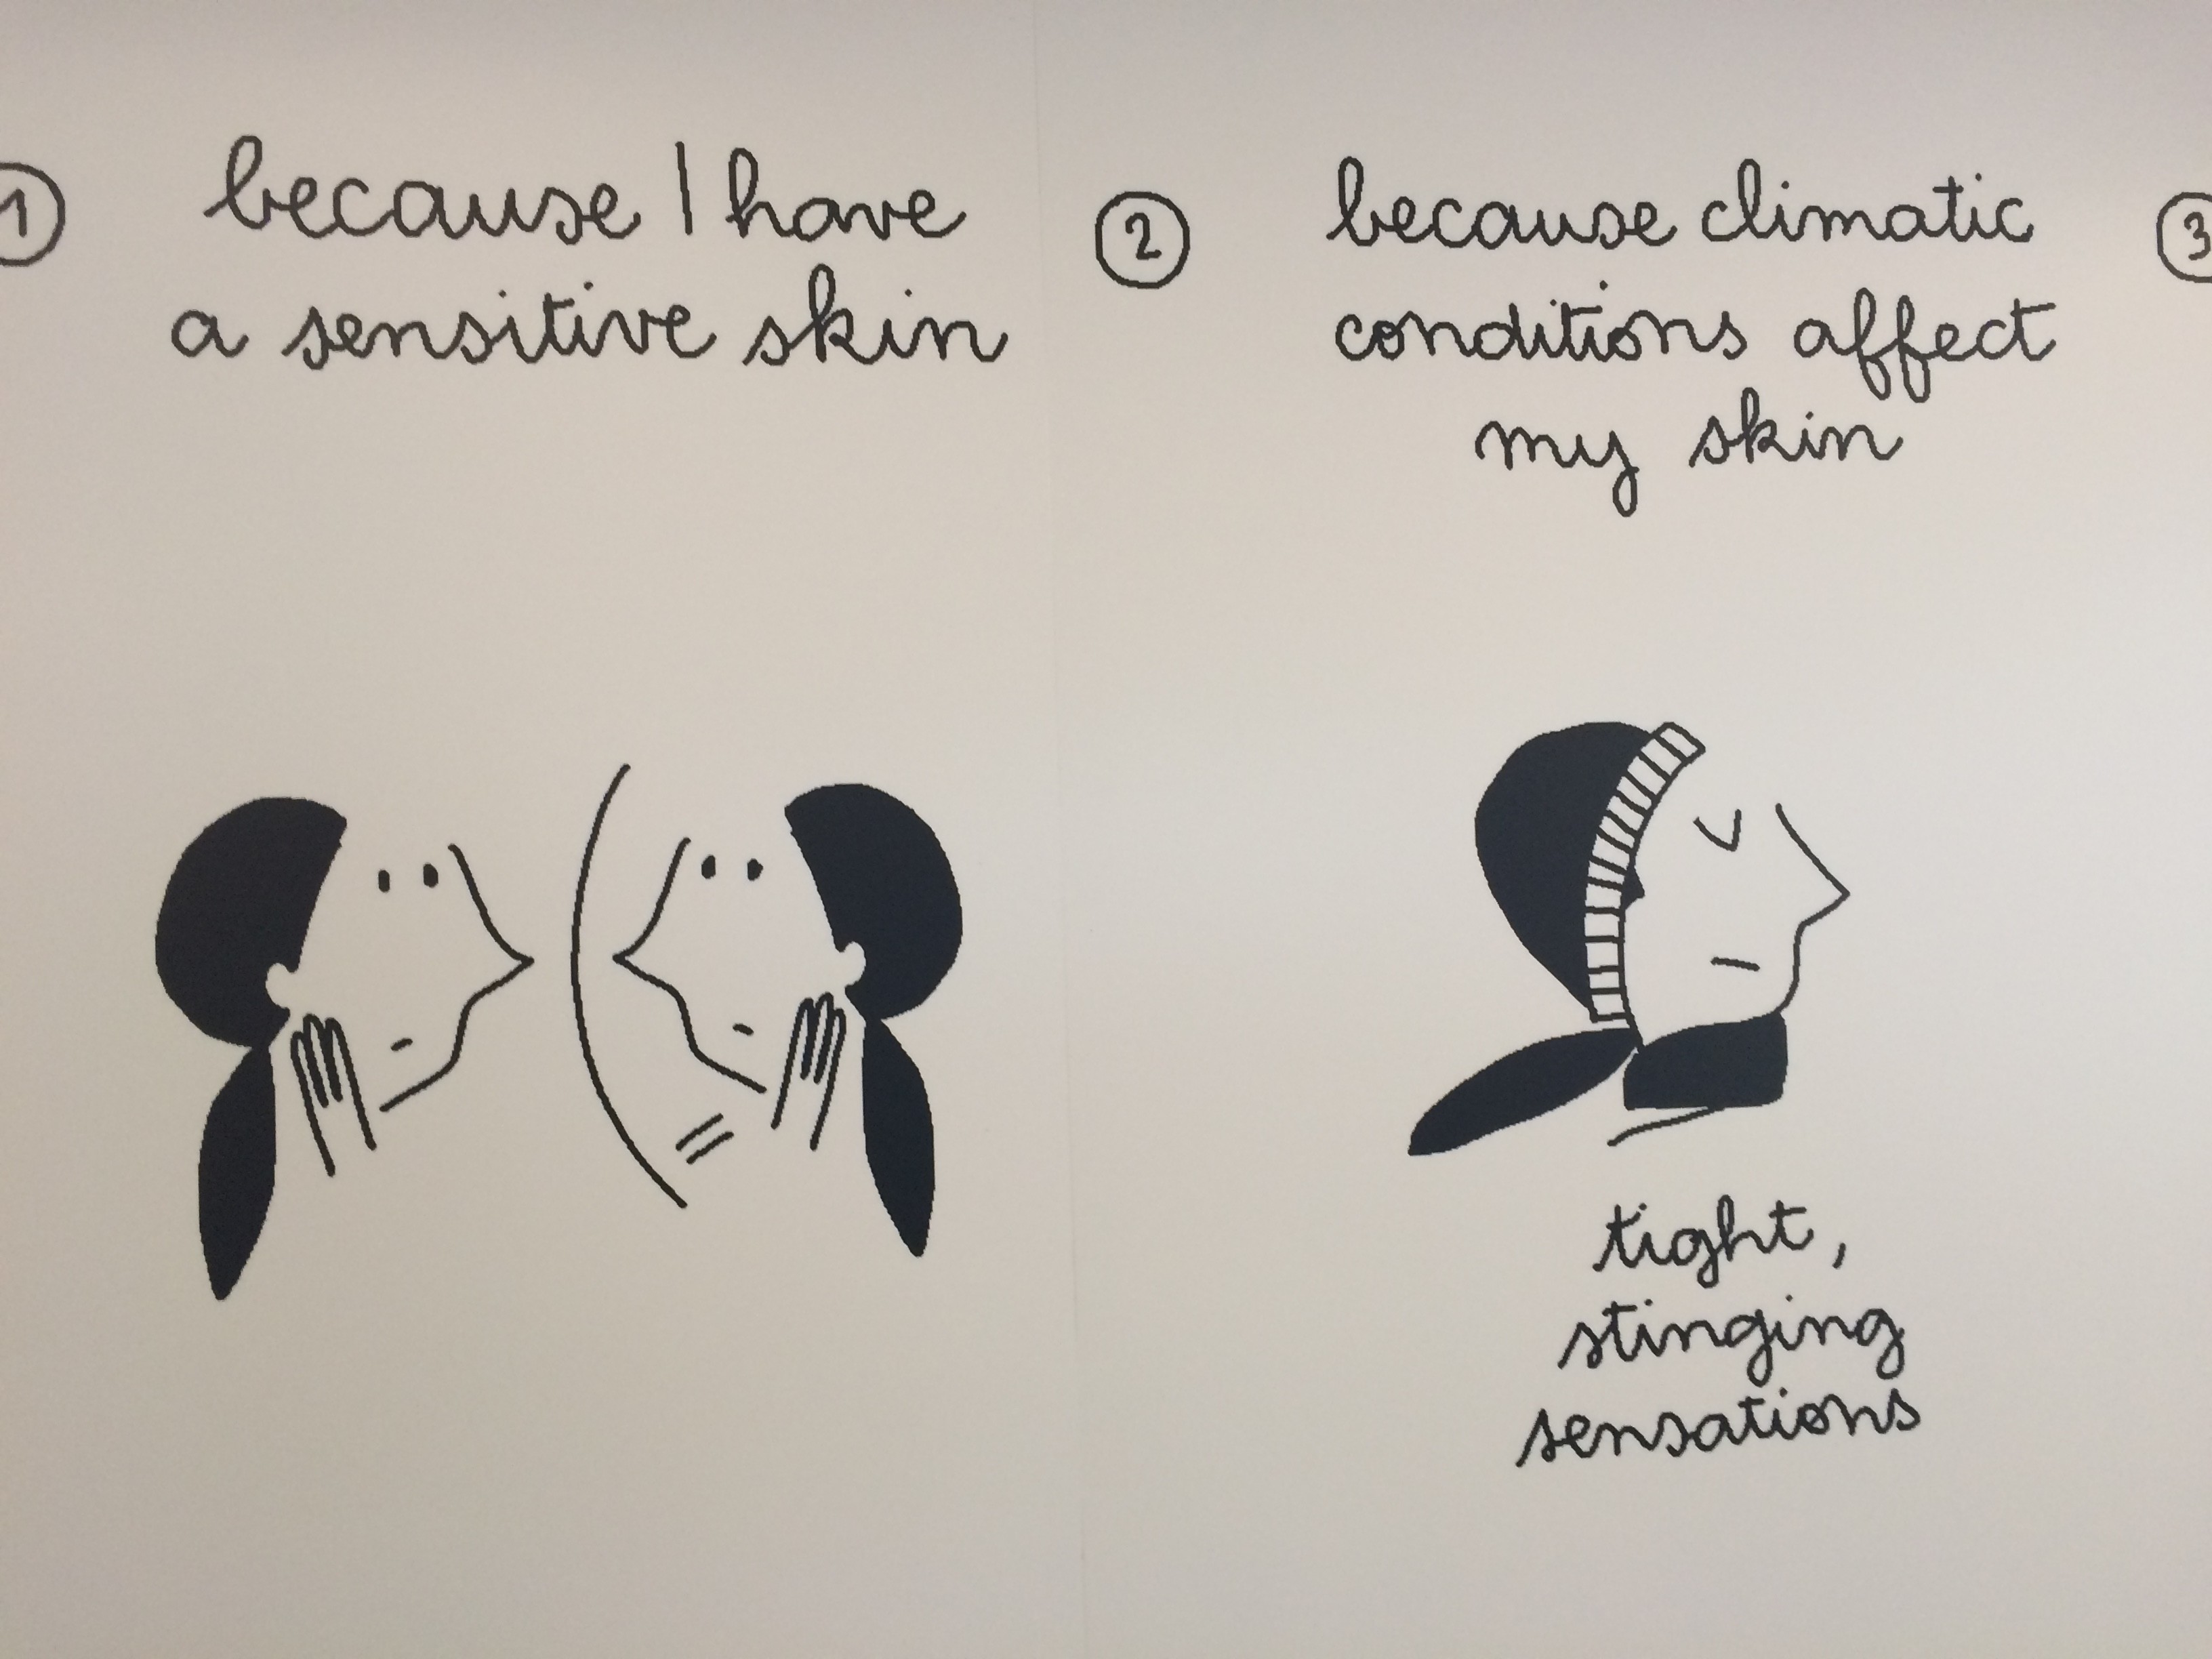 1
because I have
a sensitive skin
2
because climatic
conditions affect
my skin
tight,
stinging
sensations
3